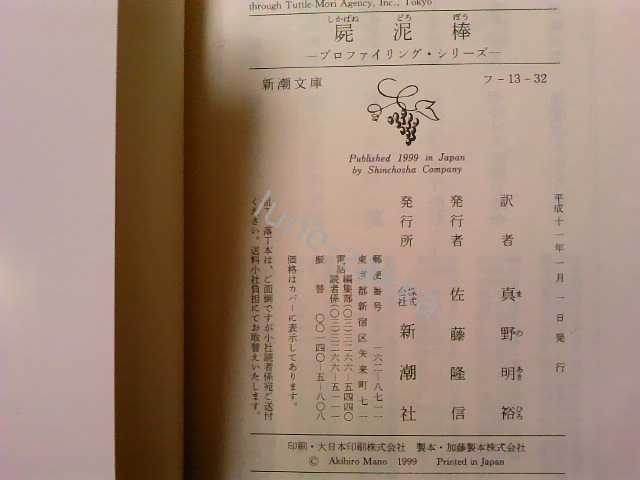 through Tuttle-Mori Agency, Inc., Tokyo
しかばね どろ ぼう
屍泥棒
―プロファイリング・シリーズ―
新潮文庫
フ-13-32
Published 1999 in Japan
by Shinchosha Company
平成十一年一月一日発行
訳者 真野明裕
ま の あき ひろ
発行者 佐藤隆信
発行所 株式会社 新潮社
郵便番号 一六二-八七一一
東京都新宿区矢来町七一
電話 編集部(〇三)三二六六-五四四〇
読者係(〇三)三二六六-五一一一
振替 〇〇一四〇-五-八〇八
価格はカバーに表示してあります。
乱丁・落丁本は、ご面倒ですが小社読者係宛ご送付
ください。送料小社負担にてお取替えいたします。
印刷・大日本印刷株式会社 製本・加藤製本株式会社
© Akihiro Mano 1999 Printed in Japan